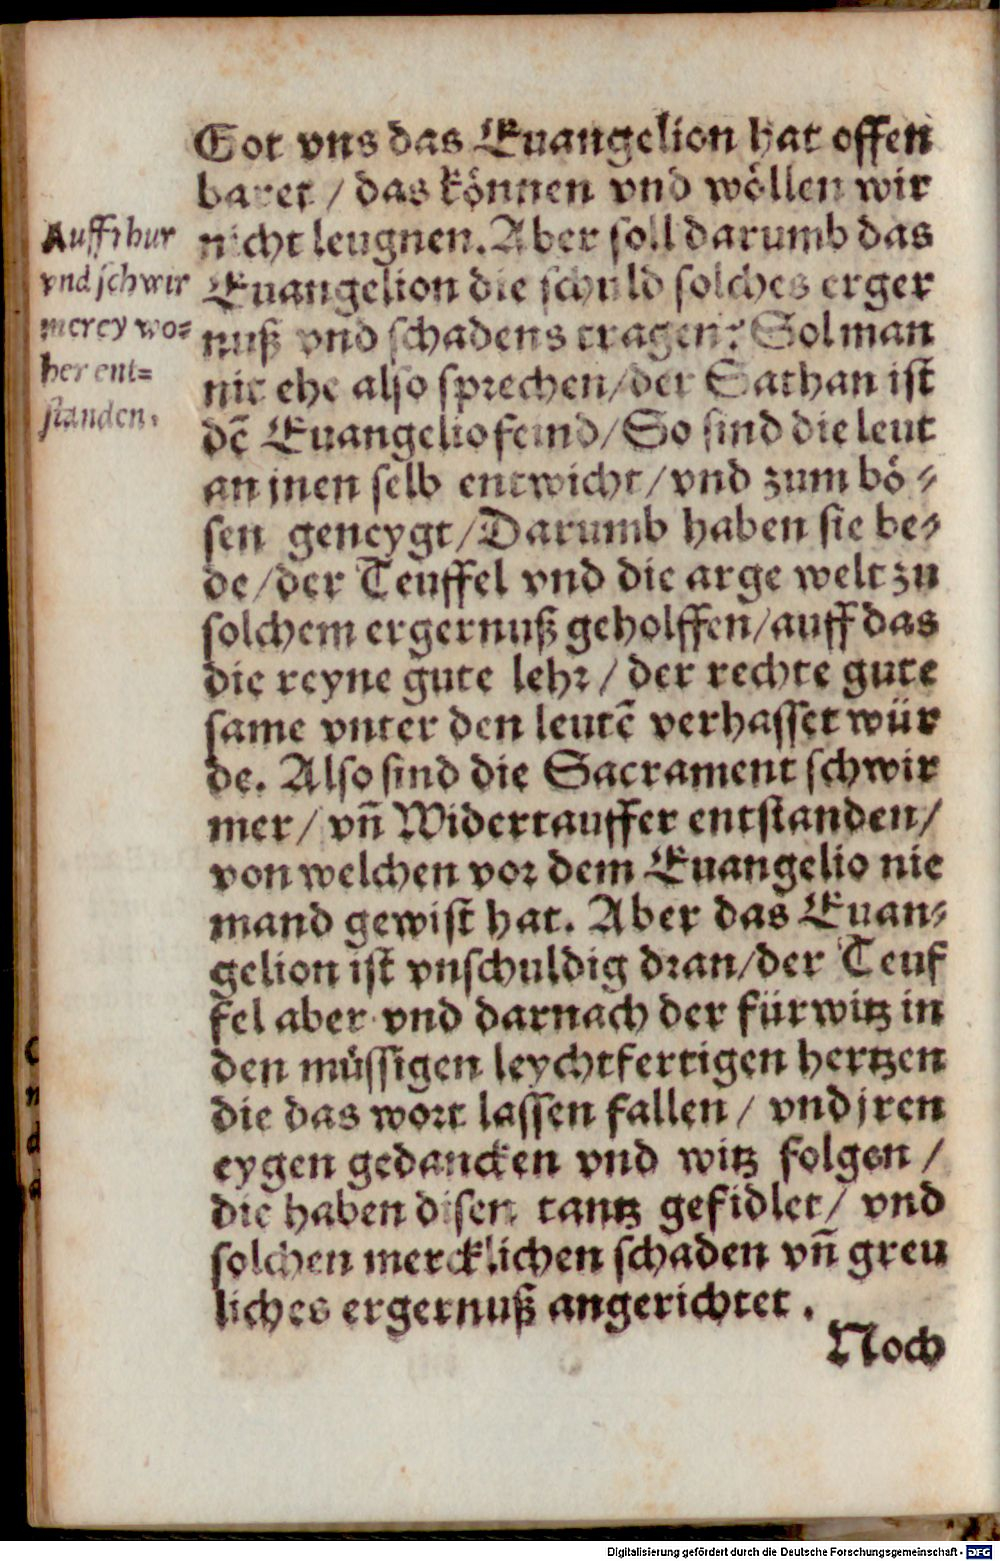 Auffrhur
vnd schwir
merey wo=
her ent=
standen.
Got vns das Euangelion hat offen
baret / das können vnd wöllen wir
nicht leugnen. Aber soll darumb das
Euangelion die schuld solches erger
nuß vnd schadens tragen? Sol man
nit ehe also sprechen/der Sathan ist
dē Euangelio feind/So sind die leut
an jnen selb entwicht/vnd zum bö⸗
sen geneygt/Darumb haben sie be⸗
de/der Teuffel vnd die arge welt zu
solchem ergernuß geholffen/auff das
die reyne gute lehr / der rechte gute
same vnter den leutē verhasset wür
de. Also sind die Sacrament schwir
mer/ vñ Widertauffer entstanden/
von welchen vor dem Euangelio nie
mand gewist hat. Aber das Euan⸗
gelion ist vnschuldig dran/der Teuf
fel aber vnd darnach der fürwitz in
den müssigen leychtfertigen hertzen
die das wort lassen fallen / vnd jren
eygen gedancken vnd witz folgen /
die haben disen tantz gefidlet/ vnd
solchen mercklichen schaden vñ greu
liches ergernuß angerichtet.
Noch
Digitalisierung gefördert durch die Deutsche Forschungsgemeinschaft - DFG